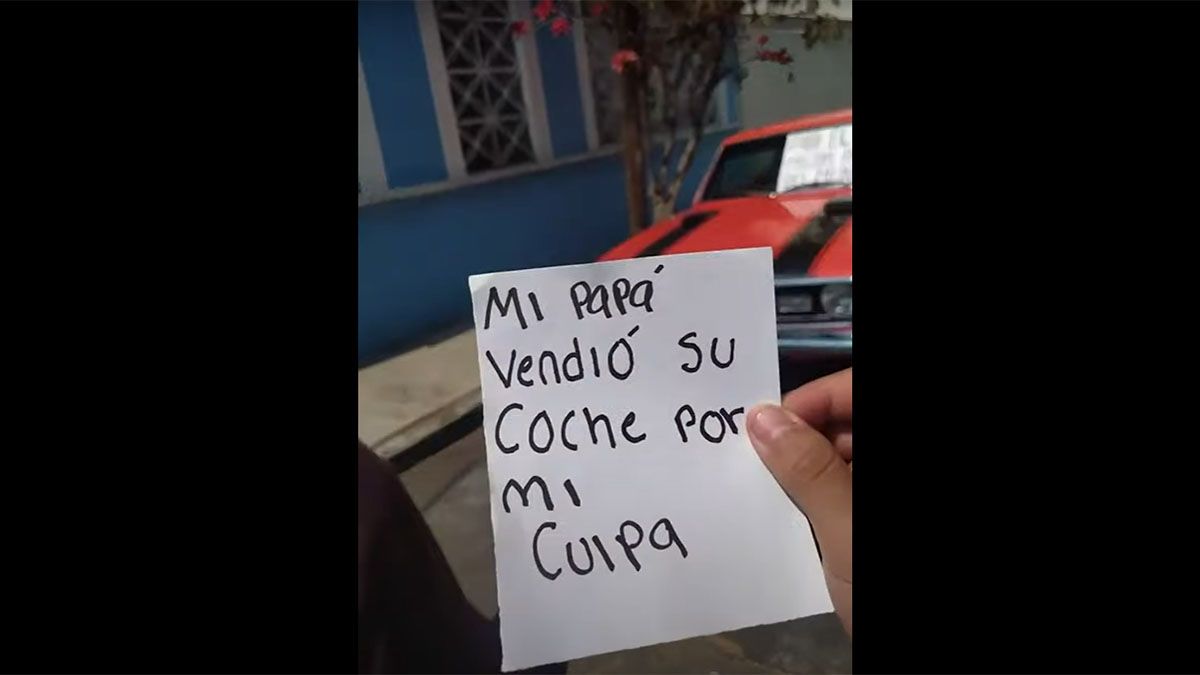 Mi papá
vendió su
coche por
mi
culpa